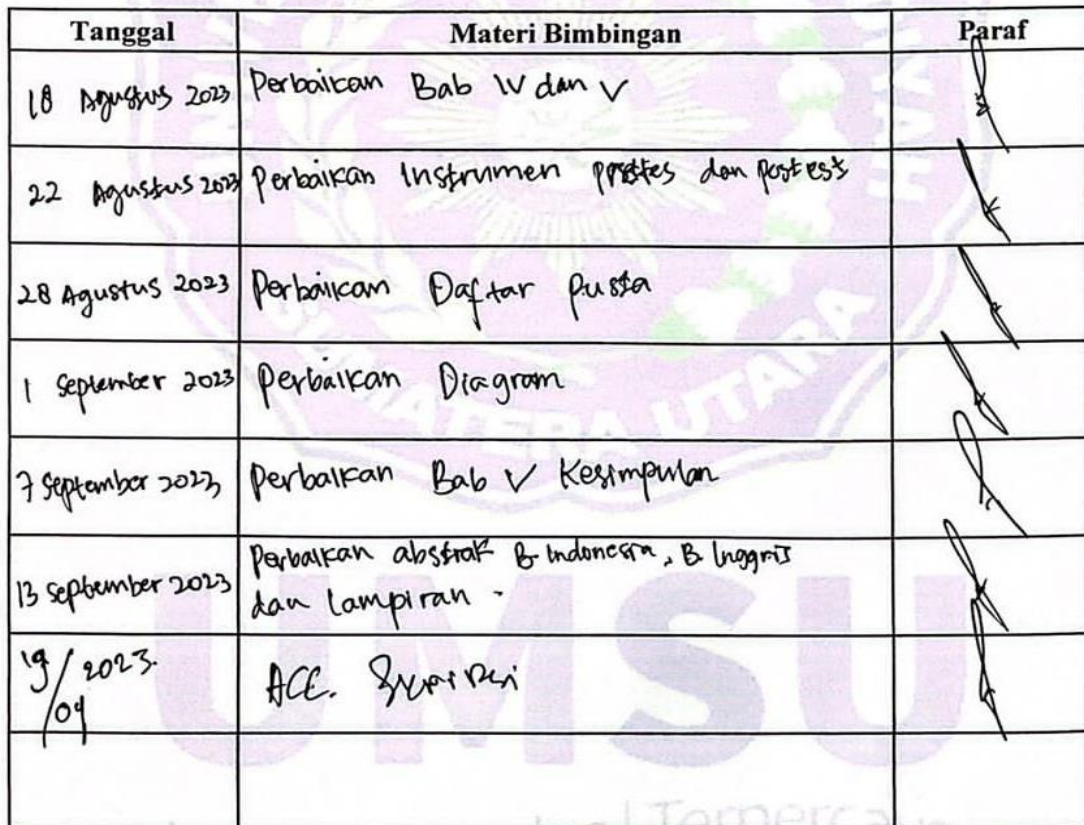 Tanggal Materi Bimbingan Paraf
18 Agustus 2023 Perbaikan Bab IV dan V
22 Agustus 2023 Perbaikan Instrumen dan postest
28 Agustus 2023 Perbaikan Daftar Pusta
1 September 2023 Perbaikan Diagram
7 September 2023 Perbaikan Bab V Kesimpulan
13 September 2023 Perbaikan abstrak B. Indonesia, B. Inggris
dan Lampiran.
19/09 2023. ACC.
SUMATERA UTARA
UMSU